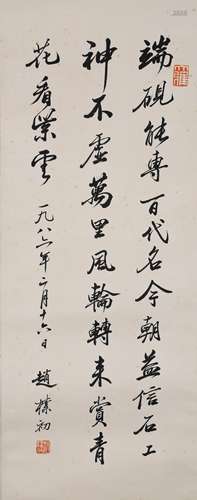 端硯能專百代名今朝益信石工
神不虛萬里風輪轉来賞青
花看紫雲 一九八三年二月十六日 趙樸初